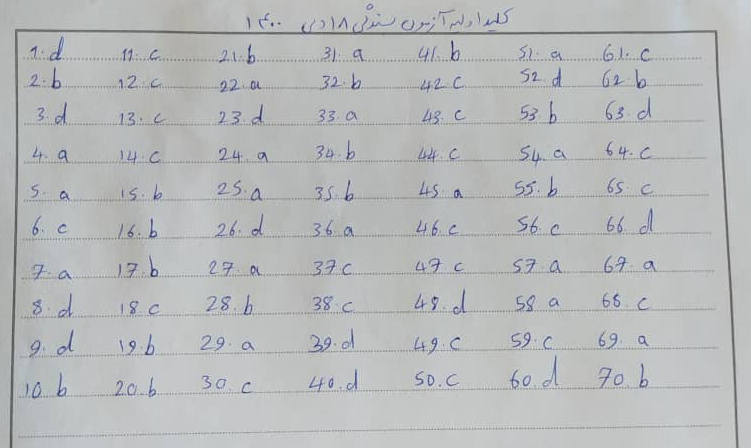 کلید اولیه آزمون سندگی ۱۸ دی ۱۴۰۰
1. d 11. c 21. b 31. a 41. b 51. a 61. c
2. b 12. c 22. a 32. b 42. c 52. d 62. b
3. d 13. c 23. d 33. a 43. c 53. b 63. d
4. a 14. c 24. a 34. b 44. c 54. a 64. c
5. a 15. b 25. a 35. b 45. a 55. b 65. c
6. c 16. b 26. d 36. a 46. c 56. c 66. d
7. a 17. b 27. a 37 c 47 c 57. a 67. a
8. d 18. c 28. b 38. c 48. d 58 a 68. c
9. d 19. b 29. a 39. d 49. c 59. c 69. a
10. b 20. b 30. c 40. d 50. c 60. d 70. b